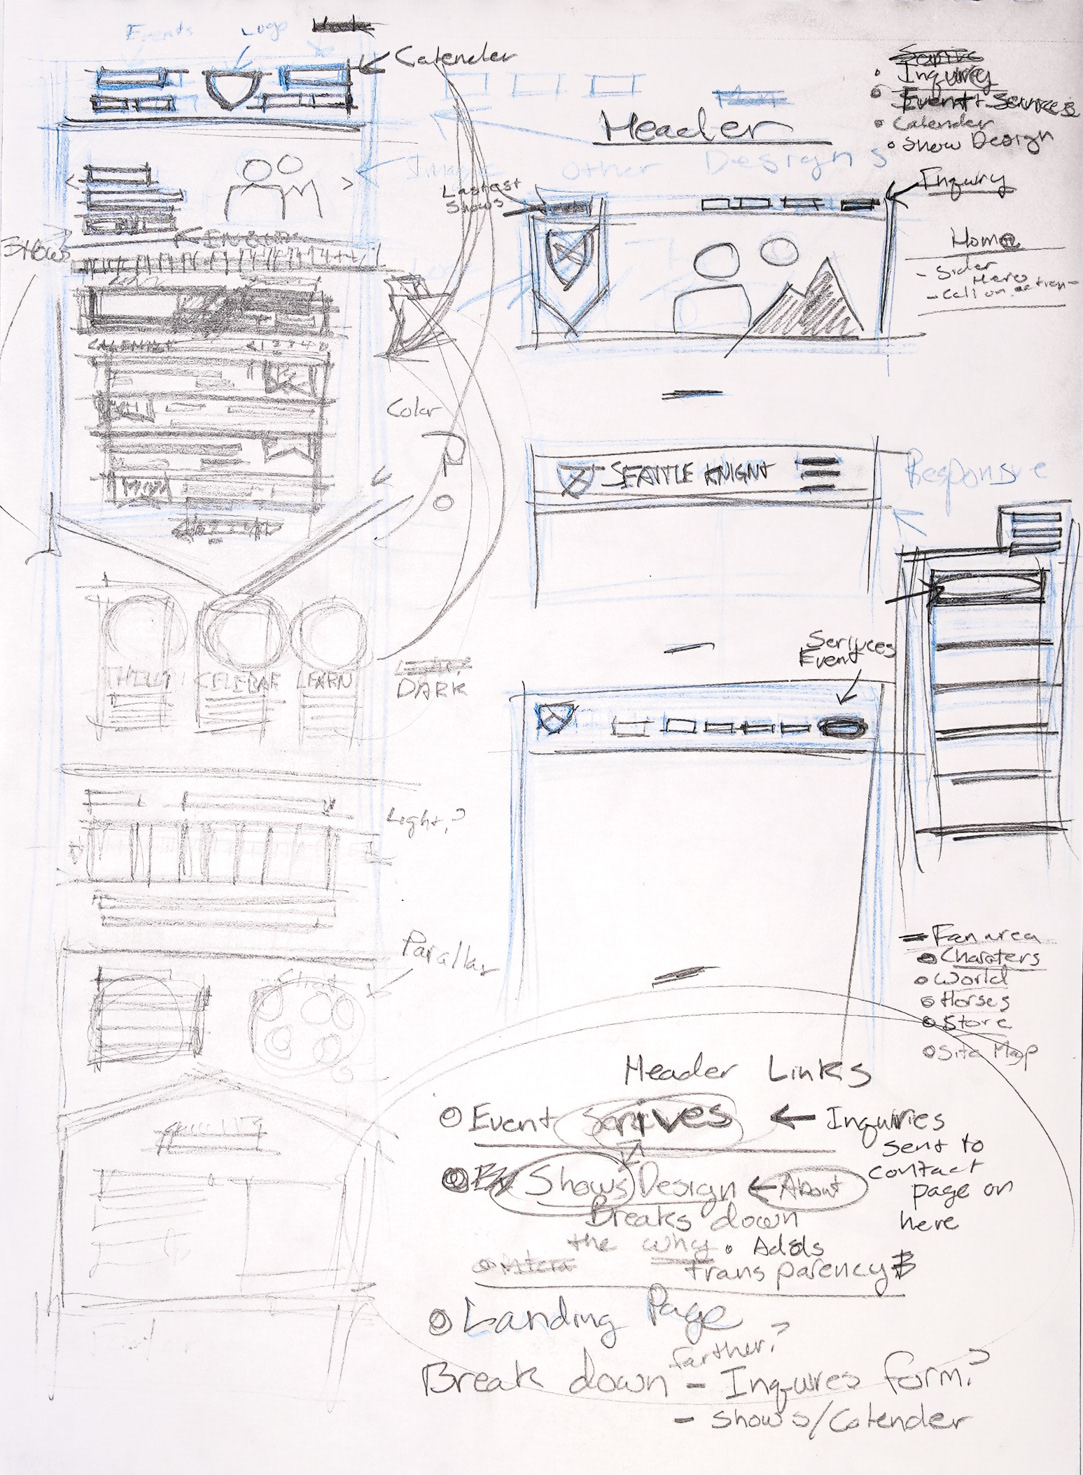 Events
Logo
Calender
Header
Other Designs
Inquiry
Event + Services
Calender
Show Design
Inquiry
Lastest
Shows
Home
Shows
Color
SEATTLE KNIGHT
Responsive
Serivces
Event
CELEBRAE
LEARN
DARK
Light?
Parallax
Fan area
Charaters
World
Horses
Store
Site Map
Header Links
Event Serives ← Inquiries
sent to
contact
page on
here
Shows/Design ← About
Breaks down
the why. Adds
transparency
Landing Page
farther?
Break down - Inquires form?
- shows/Calender